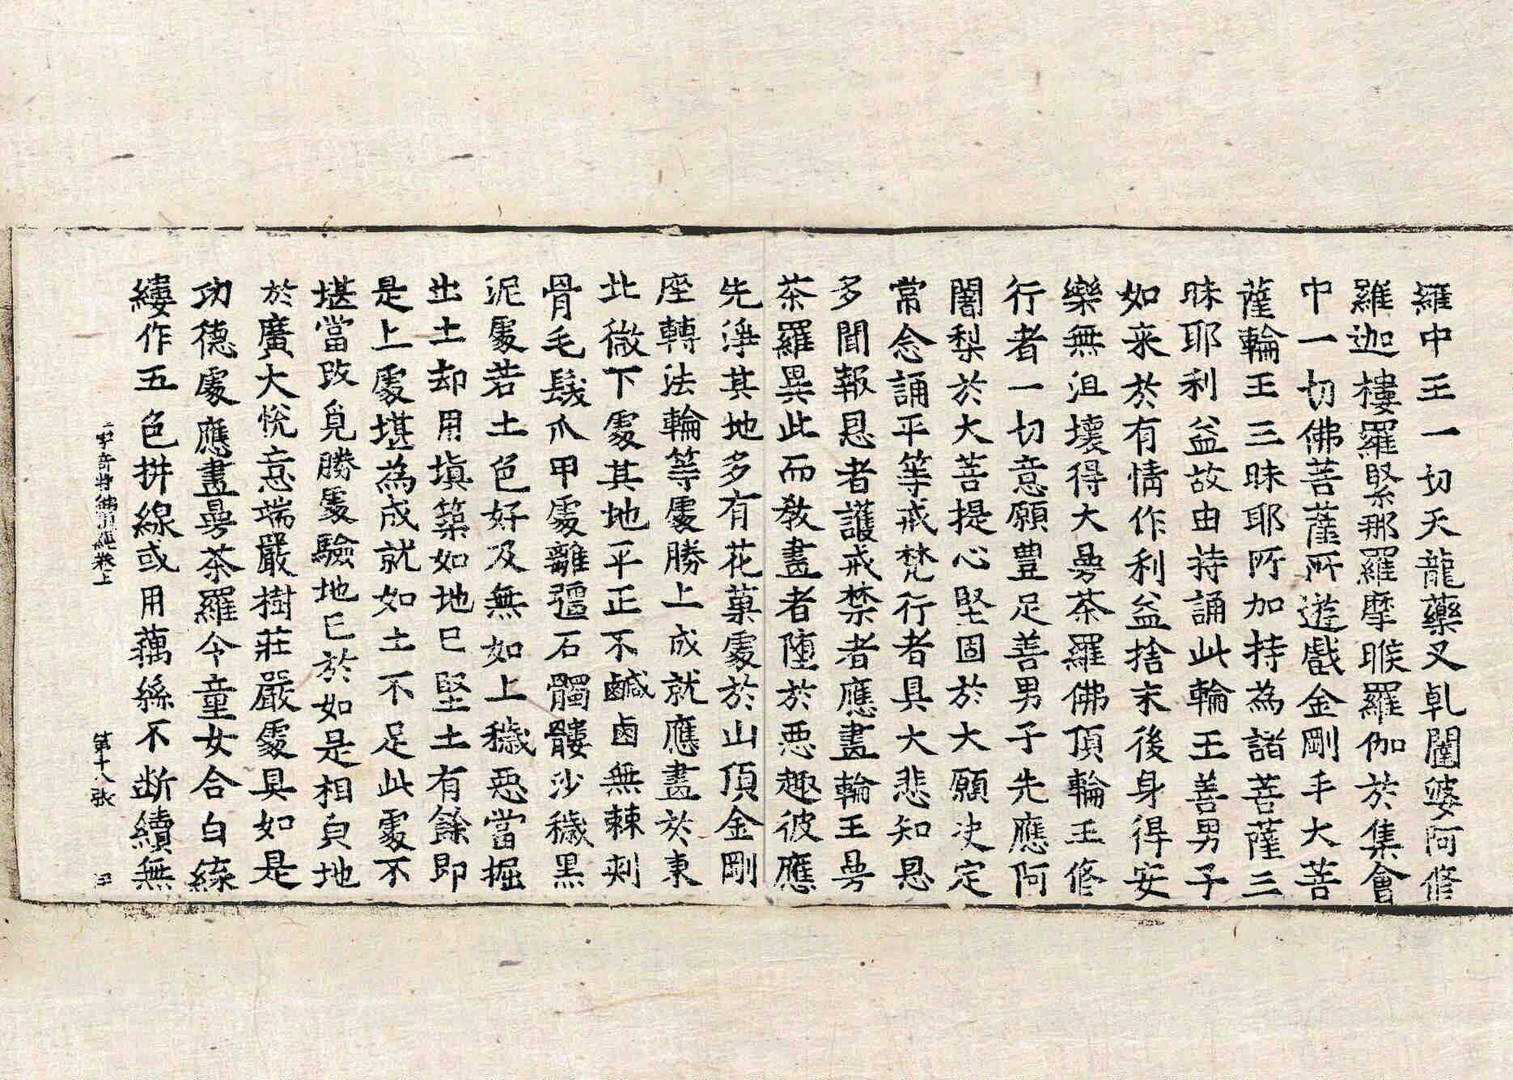 羅中王一切天龍藥叉乹闥婆阿修
羅迦樓羅緊那羅摩睺羅伽於集會
中一切佛菩薩所遊戲金剛手大菩
薩輪王三昧耶所加持為諸菩薩三
昧耶利益故由持誦此輪王善男子
如来於有情作利益捨末後身得安
樂無沮壞得大曼茶羅佛頂輪王修
行者一切意願豊足善男子先應阿
闍梨於大菩提心堅固於大願决定
常念誦平等戒梵行者具大悲知恩
多聞報恩者護戒禁者應畫輪王曼
茶羅異此而教畫者墮於惡趣彼應
先淨其地多有花菓處於山頂金剛
座轉法輪等處勝上成就應畫於東
北微下處其地平正不鹹鹵無棘刺
骨毛髮爪甲處離礓石髑髏沙穢黑
泥處若土色好及無如上穢惡當掘
出土却用填築如地已堅土有餘即
是上處堪為成就如土不足此處不
堪當改覓勝處驗地已於如是相皃地
於廣大悅意端嚴樹莊嚴處具如是
功德處應畫曼茶羅令童女合白綫
縷作五色拼線或用藕絲不断續無
一字奇特佛頂經卷上 第十八張